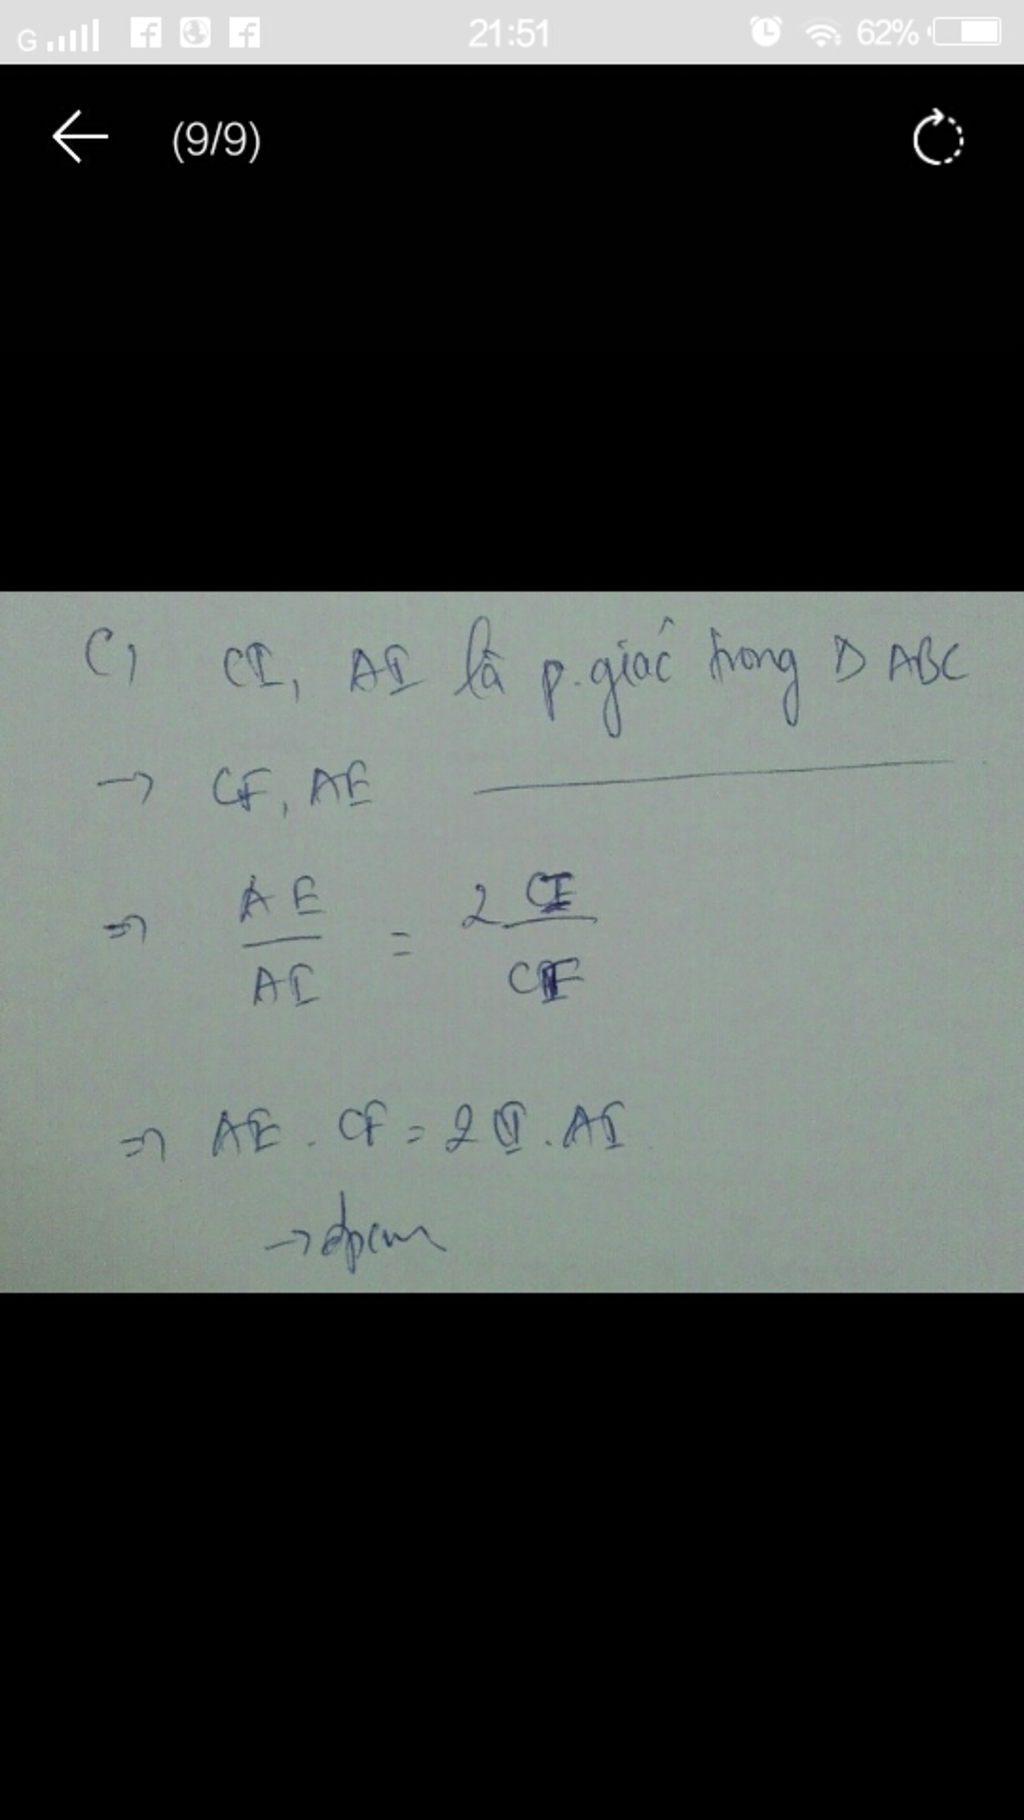 G 21:51 62%
(9/9)
C) CI, AI là p.giác trong Δ ABC
→ CF, AE
⇒ AE / AI = 2 CI / CF
⇒ AE . CF = 2 CI . AI
→ đpcm